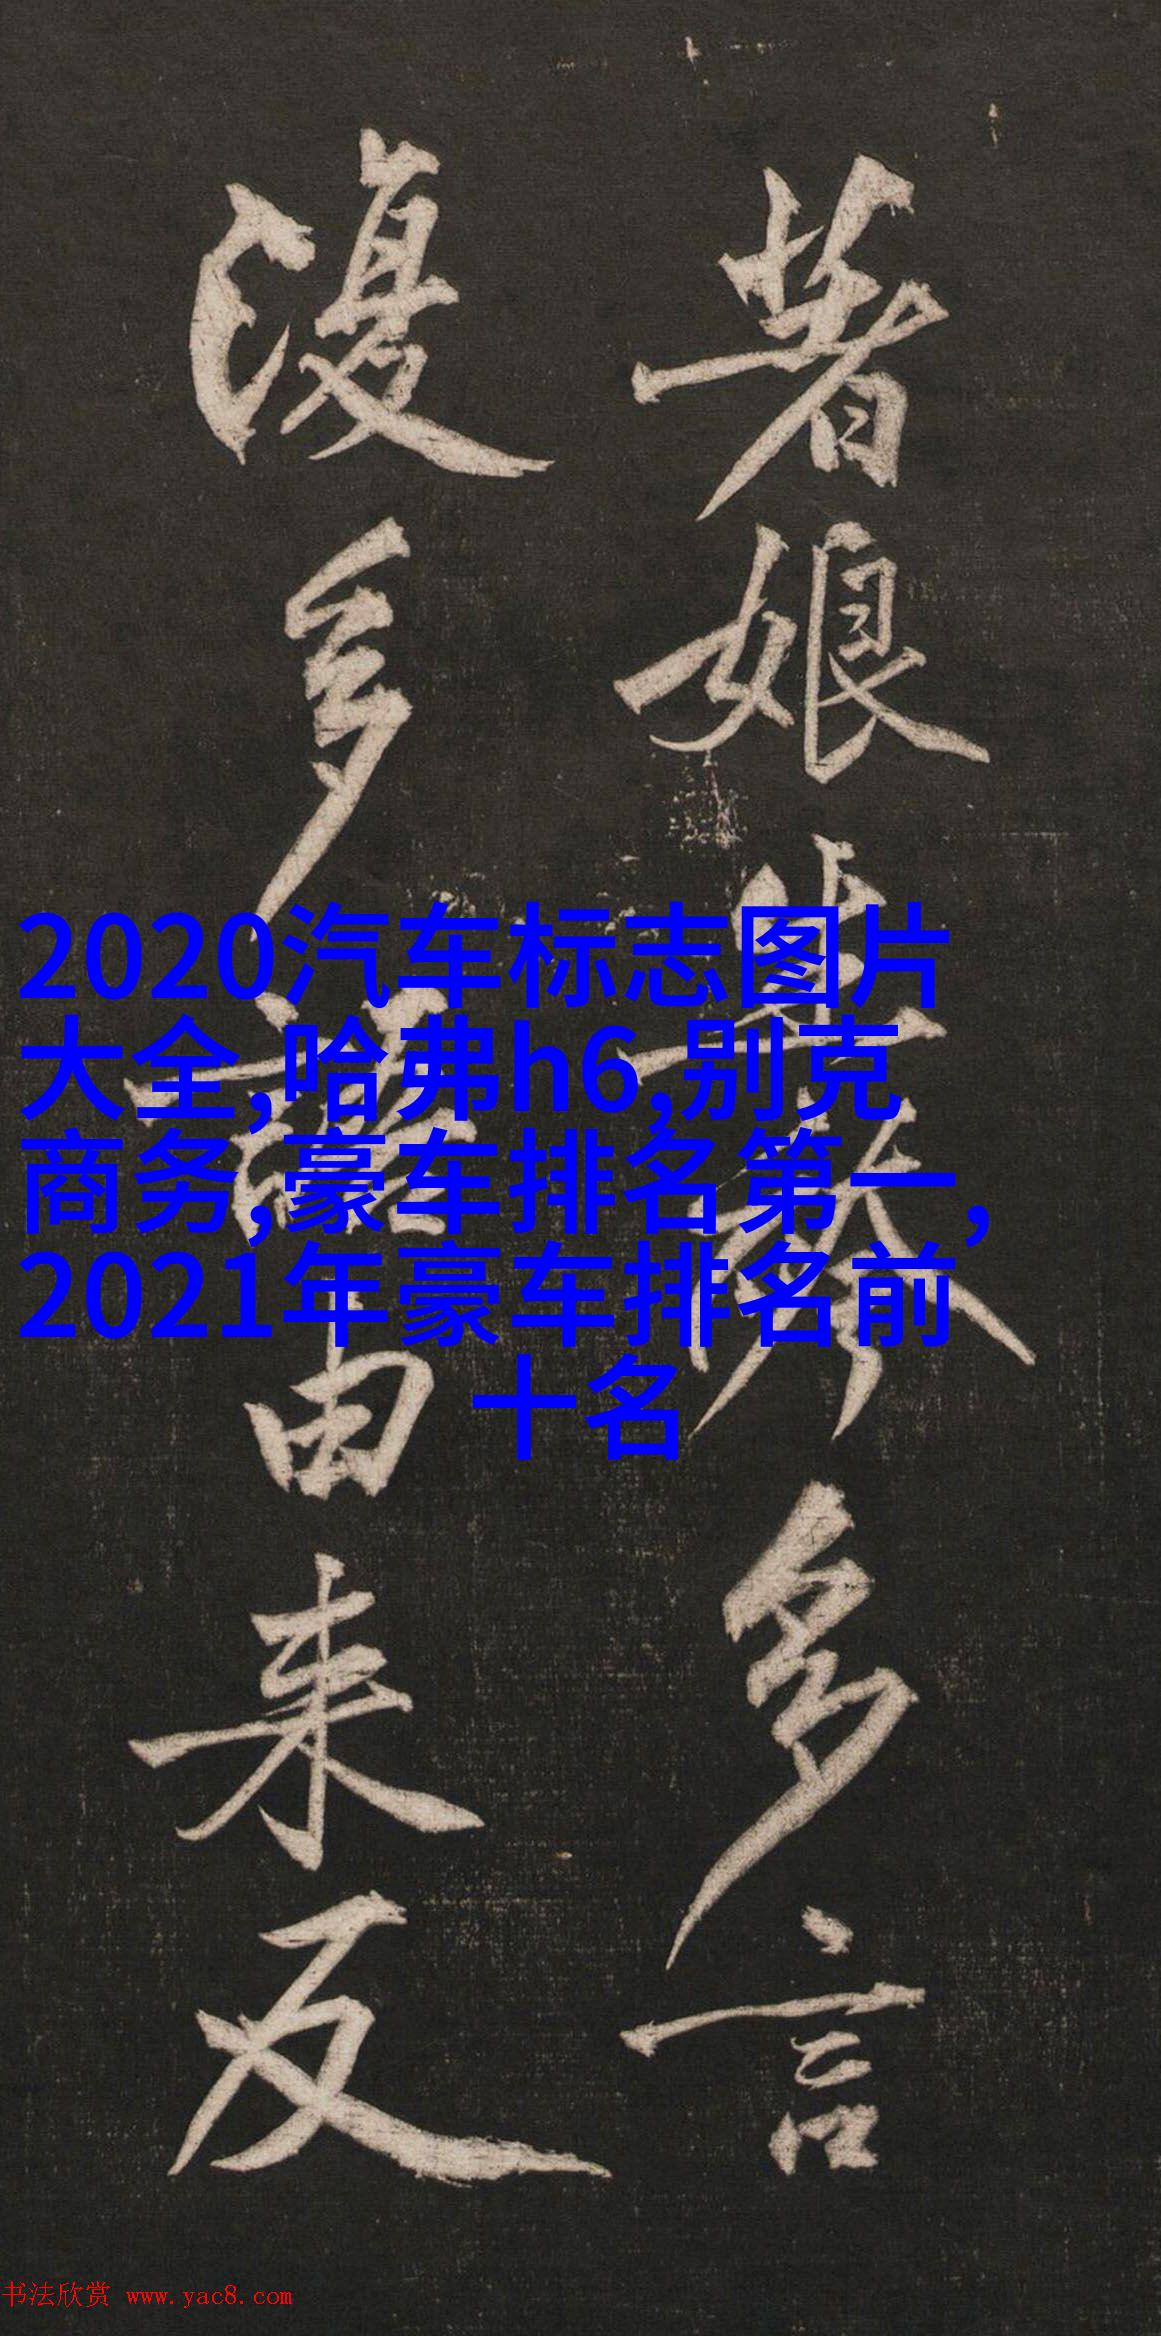 娘 多言
多 由来反
2020汽车标志图片
大全,哈弗h6,别克
商务,豪车排名第一,
2021年豪车排名前
十名
书法欣赏 www.yac8.com